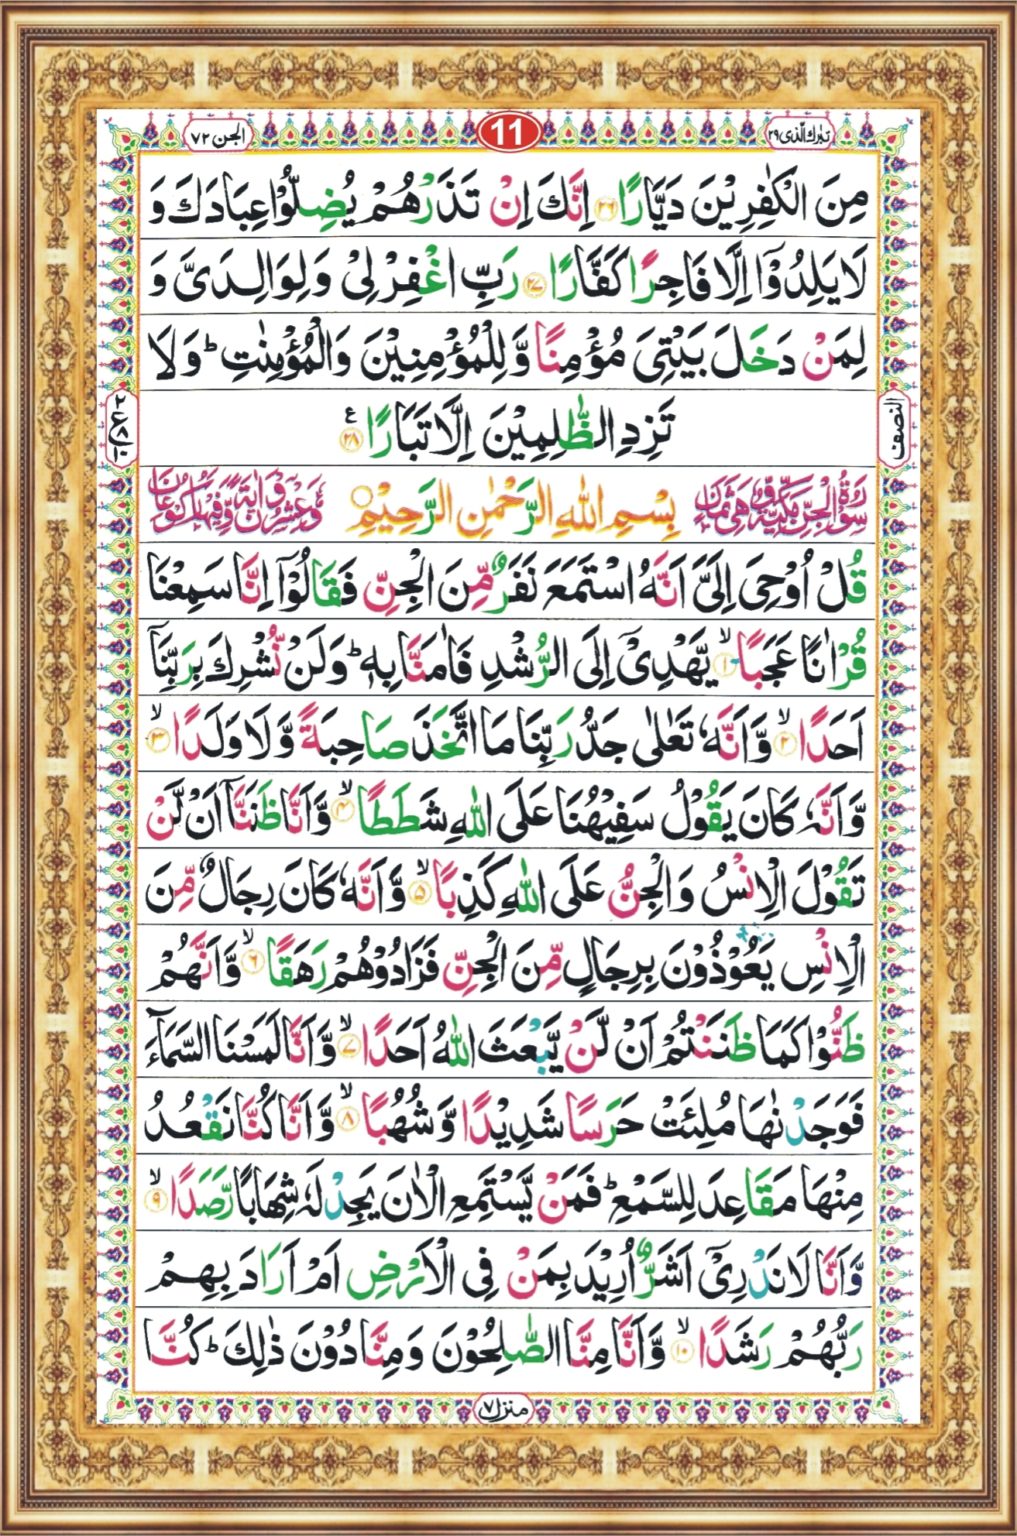 تبٰرك الّذی ٢٩
11
الجن ٧٢
مِنَ الْكٰفِرِیْنَ دَیَّارًا ﴿٢٦﴾ اِنَّكَ اِنْ تَذَرْهُمْ یُضِلُّوْا عِبَادَكَ وَ
لَا یَلِدُوْۤا اِلَّا فَاجِرًا كَفَّارًا ﴿٢٧﴾ رَبِّ اغْفِرْ لِیْ وَ لِوَالِدَیَّ وَ
لِمَنْ دَخَلَ بَیْتِیَ مُؤْمِنًا وَّ لِلْمُؤْمِنِیْنَ وَ الْمُؤْمِنٰتِ ؕ وَ لَا
تَزِدِ الظّٰلِمِیْنَ اِلَّا تَبَارًا ﴿٢٨﴾ ع
النصف
سُوْرَةُ الْجِنِّ مَكِّیَّةٌ وَّ هِیَ ثَمَانٌ
بِسْمِ اللّٰهِ الرَّحْمٰنِ الرَّحِیْمِ
وَّ عِشْرُوْنَ اٰیَةً وَّ فِیْهَا رُكُوْعَانِ
قُلْ اُوْحِیَ اِلَیَّ اَنَّهُ اسْتَمَعَ نَفَرٌ مِّنَ الْجِنِّ فَقَالُوْۤا اِنَّا سَمِعْنَا
قُرْاٰنًا عَجَبًا ﴿١﴾ ۙ یَّهْدِیْۤ اِلَی الرُّشْدِ فَاٰمَنَّا بِهٖ ؕ وَ لَنْ نُّشْرِكَ بِرَبِّنَاۤ
اَحَدًا ﴿٢﴾ ۙ وَّ اَنَّهٗ تَعٰلٰی جَدُّ رَبِّنَا مَا اتَّخَذَ صَاحِبَةً وَّ لَا وَلَدًا ﴿٣﴾ ۙ
وَّ اَنَّهٗ كَانَ یَقُوْلُ سَفِیْهُنَا عَلَی اللّٰهِ شَطَطًا ﴿٤﴾ ۙ وَّ اَنَّا ظَنَنَّاۤ اَنْ لَّنْ
تَقُوْلَ الْاِنْسُ وَ الْجِنُّ عَلَی اللّٰهِ كَذِبًا ﴿٥﴾ ۙ وَّ اَنَّهٗ كَانَ رِجَالٌ مِّنَ
الْاِنْسِ یَعُوْذُوْنَ بِرِجَالٍ مِّنَ الْجِنِّ فَزَادُوْهُمْ رَهَقًا ﴿٦﴾ ۙ وَّ اَنَّهُمْ
ظَنُّوْا كَمَا ظَنَنْتُمْ اَنْ لَّنْ یَّبْعَثَ اللّٰهُ اَحَدًا ﴿٧﴾ ۙ وَّ اَنَّا لَمَسْنَا السَّمَآءَ
فَوَجَدْنٰهَا مُلِئَتْ حَرَسًا شَدِیْدًا وَّ شُهُبًا ﴿٨﴾ ۙ وَّ اَنَّا كُنَّا نَقْعُدُ
مِنْهَا مَقَاعِدَ لِلسَّمْعِ ؕ فَمَنْ یَّسْتَمِعِ الْاٰنَ یَجِدْ لَهٗ شِهَابًا رَّصَدًا ﴿٩﴾ ۙ
وَّ اَنَّا لَا نَدْرِیْۤ اَشَرٌّ اُرِیْدَ بِمَنْ فِی الْاَرْضِ اَمْ اَرَادَ بِهِمْ
رَبُّهُمْ رَشَدًا ﴿١٠﴾ ۙ وَّ اَنَّا مِنَّا الصّٰلِحُوْنَ وَ مِنَّا دُوْنَ ذٰلِكَ ؕ كُنَّا
منزل ٧